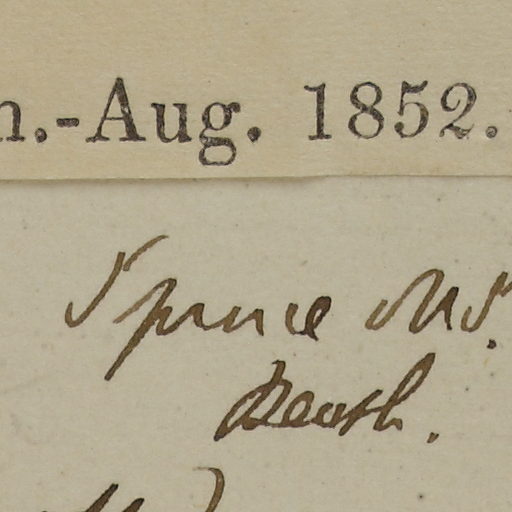 n.-Aug. 1852.
Spruce MS.
Benth.